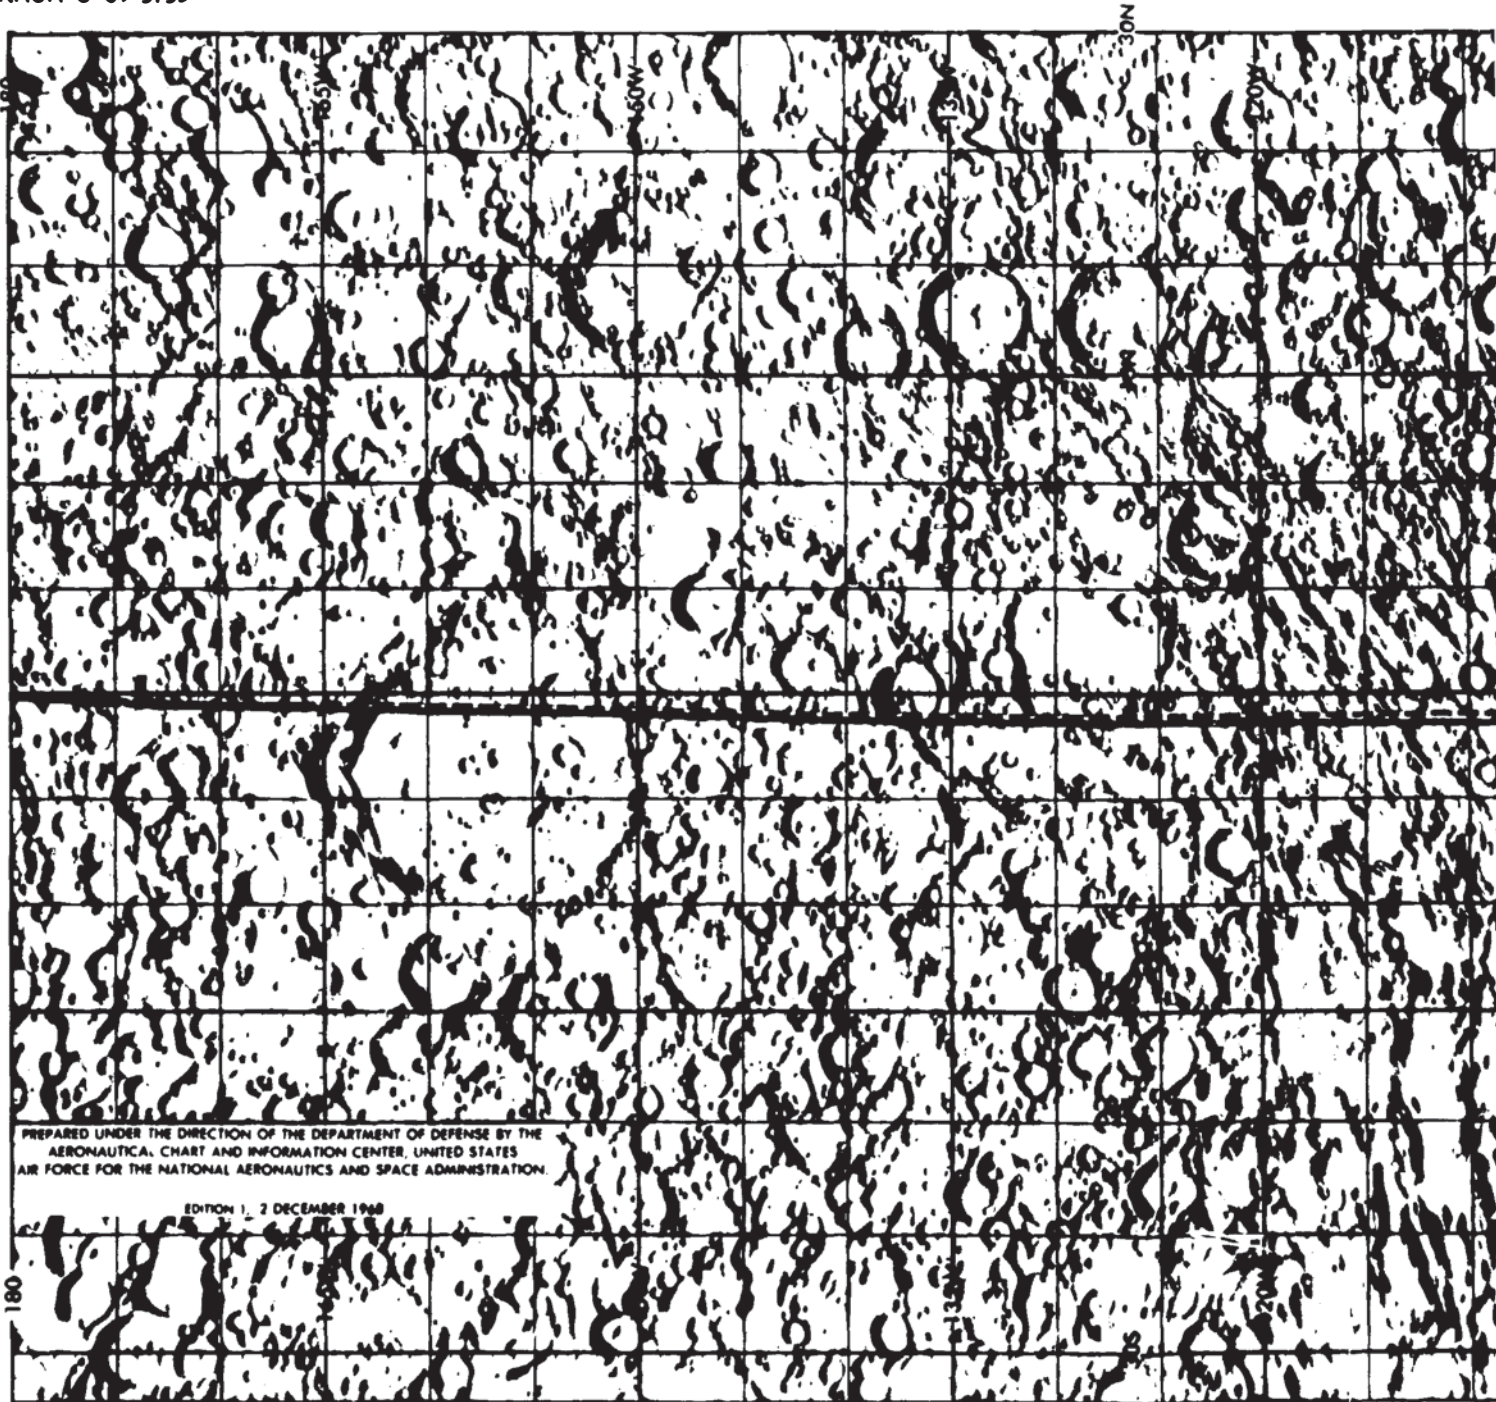 30N
180
165W
150W
135W
120W
PREPARED UNDER THE DIRECTION OF THE DEPARTMENT OF DEFENSE BY THE
AERONAUTICAL CHART AND INFORMATION CENTER, UNITED STATES
AIR FORCE FOR THE NATIONAL AERONAUTICS AND SPACE ADMINISTRATION.
EDITION 1, 2 DECEMBER 1968
180
135W
120W